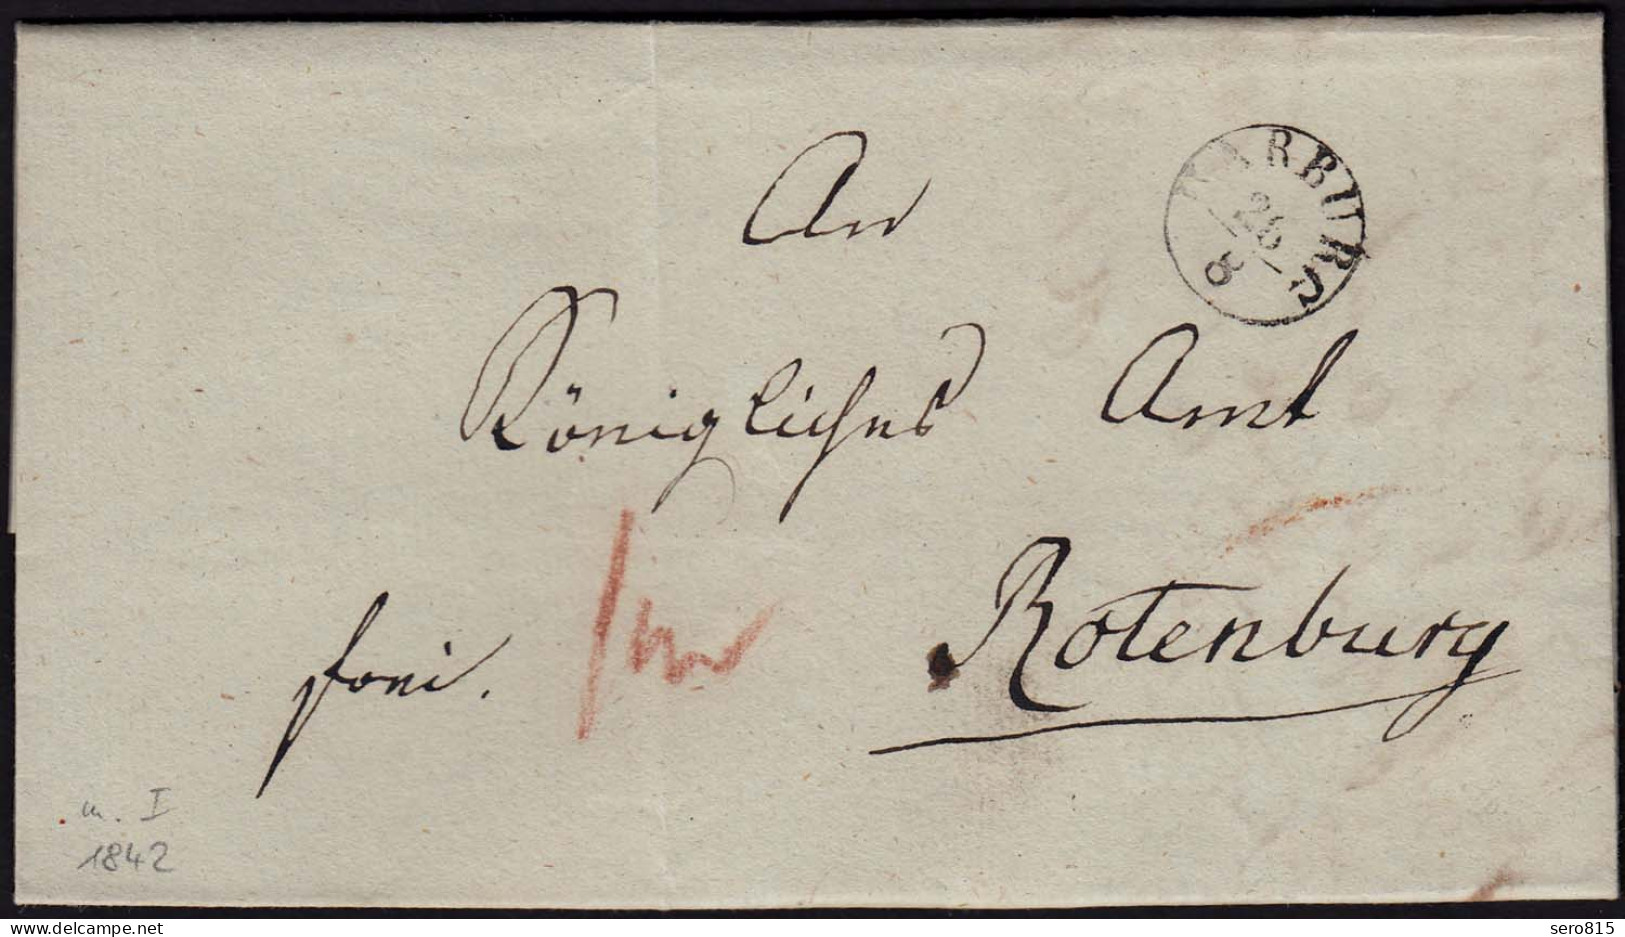 HARBURG
26
8
An
Königliches Amt
Rotenburg
frei.
m. I
1842
delcampe.net
sero815